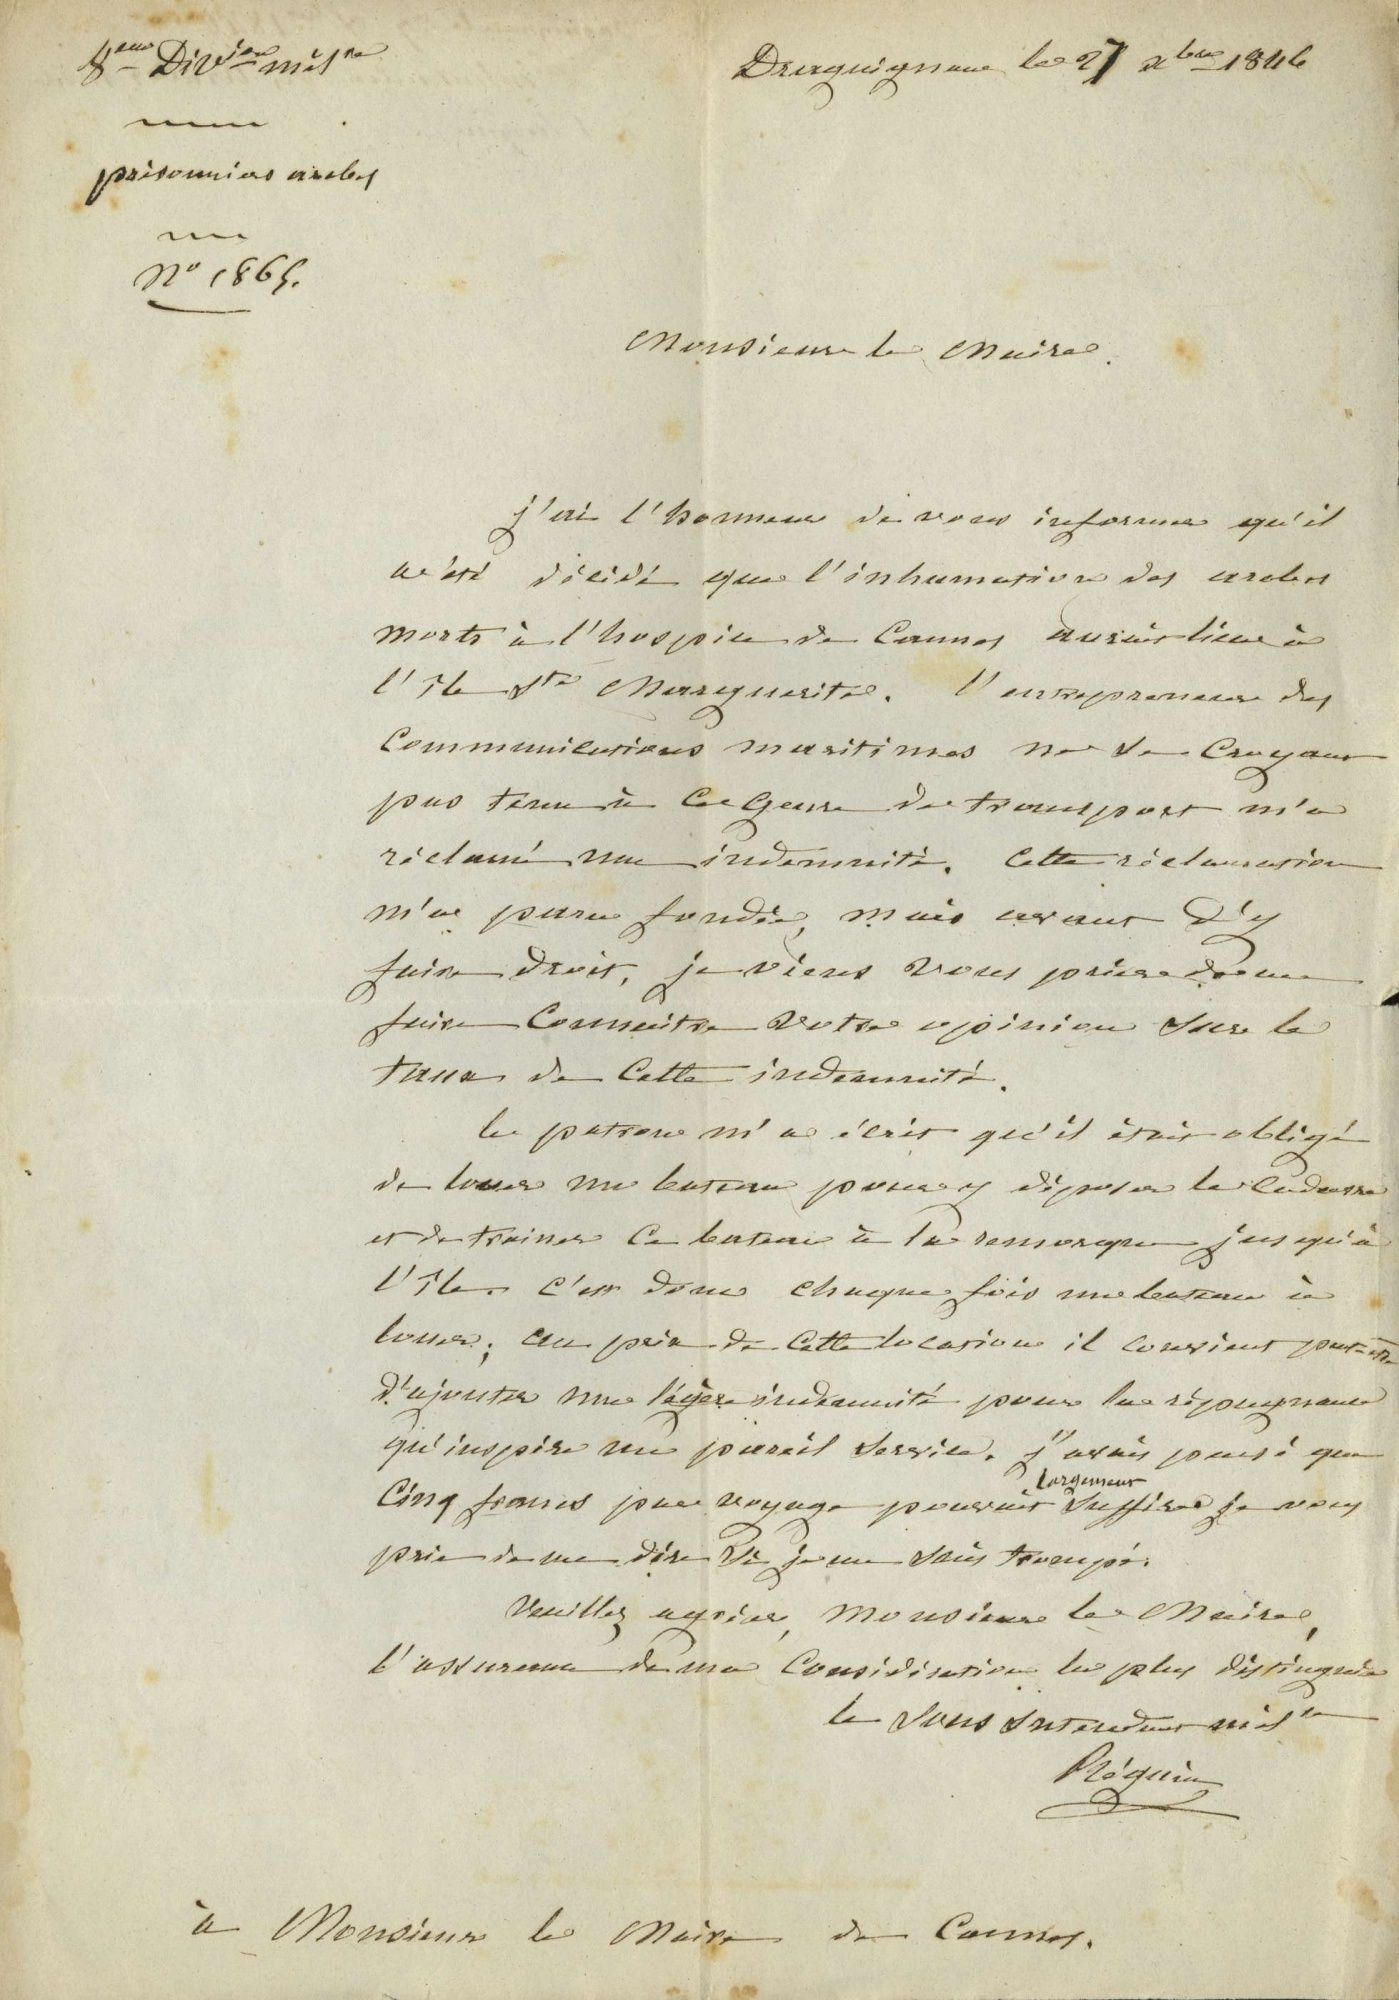 8eme Divion milre
prisonniers arabes
No 1865.
Draguignan le 27 xbre 1846
Monsieur le Maire.
j'ai l'honneur de vous informer qu'il
a été décidé que l'inhumation des arabes
morts à l'hospice de Cannes aurait lieu à
l'île Ste Marguerite. l'entrepreneur des
Communications maritimes ne se Croyant
pas tenu à Ce Genre de transport m'a
réclamé une indemnité. Cette réclamation
m'a paru fondée, mais avant d'y
faire droit, je viens vous prier de me
faire Connaitre votre opinion sur le
taux de Cette indemnité.
le patron m'a écrit qu'il était obligé
de louer un bateau pour y déposer le Cadavre
et de trainer Ce bateau à la remorque jusqu'à
l'île. C'est donc chaque fois un bateau à
louer; au prix de Cette location il convient peut-être
d'ajouter une légère indemnité pour la répugnance
qu'inspire un pareil service. j'avais pensé que
Cinq francs par voyage pouvait largement suffire je vous
prie de me dire si je me suis trompé.
Veuillez agréer, Monsieur le Maire,
l'assurance de ma Considération la plus distinguée
le Sous Intendant milre
Réguin
à Monsieur le Maire de Cannes.